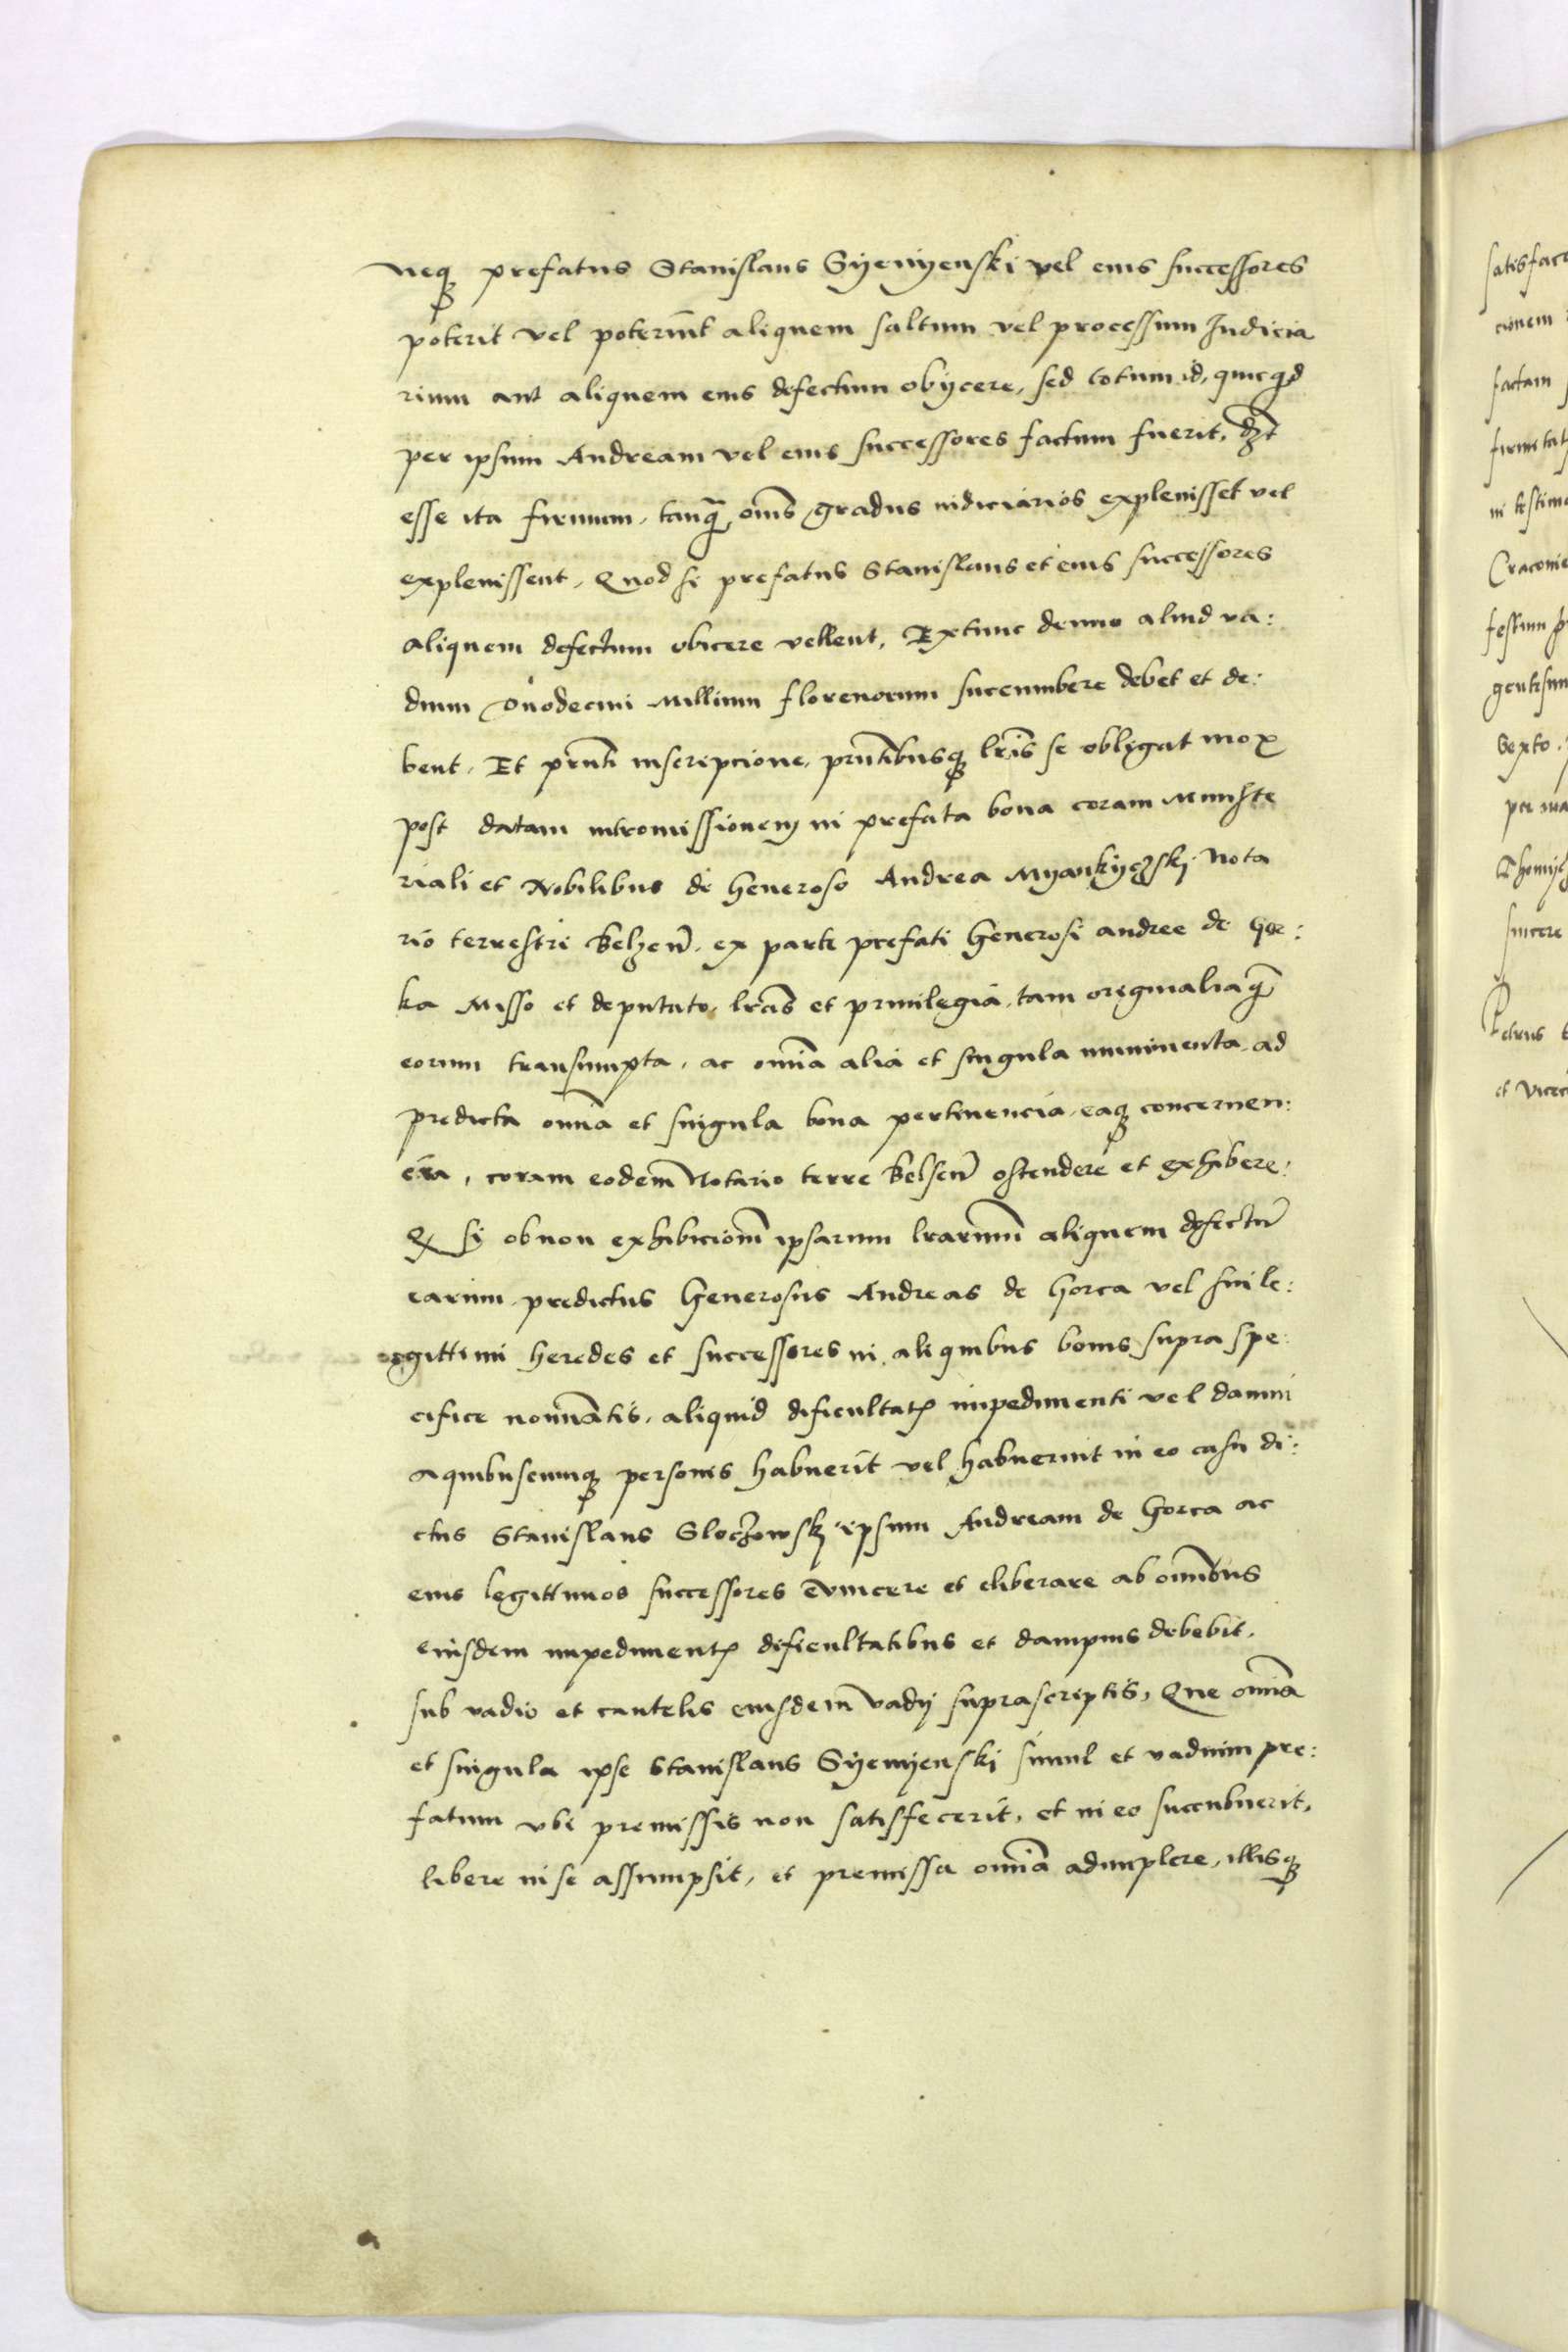 neq prefatus Stanislaus Syemyenski vel eius successores
poterit vel poterint aliquem saltum vel processum Judicia
rium aut aliquem eius defectum obijcere, sed totum id, quicqd
per ipsum Andream vel eius successores factum fuerit, dzt
esse ita firmum, tanq̃ oms̃ gradus iudiciarios explenisset vel
explenissent, Quod si prefatus Stanislaus et eius successores
aliquem defectum obicere vellent, Extunc denuo aliud va:
dium duodecim Millium florenorum succumbere debet et de:
bent, Et prñti inscripcione, prñtibusq lris̃ se obligat mox
post datam intromissionem in prefata bona coram Ministe
riali et Nobilibus de Generoso Andrea Nota
rio terrestri Belzeñ, ex parte prefati Generosi andree de Gor:
ka Misso et deputato, lras̃ et priuilegia, tam originalia q̃
eorum transumpta, ac omĩa alia et singula munimenta, ad
predicta omĩa et singula bona pertinencia, eaq concernen:
cia, coram eodem̃ Notario terre Belseñ ostendere et exhibere:
Q si ob non exhibiciom̃ ipsarum lrarum̃ aliquem defectũ
earum, predictus Generosus Andreas de Gorca vel sui le:
gittimi heredes et successores in aliquibus bonis supra spe:
cifice nomiñatis, aliquid dificultatꝭ impedimenti vel damni
a quibuscumq personis habuerit vel habuerint in eo casu di:
ctus Stanislaus ipsum Andream de Gorca ac
eius legittimos successores evincere et eliberare ab omĩbus
eiusdem impedimentꝭ dificultatibus et dampnis debebit,
sub vadio et cautelis eiusdem̃ vadij suprascriptis, Que omĩa
et singula ipse Stanislaus Syemyenski simul et vadium pre:
fatum vbi premissis non satisfecerit, et in eo succubuerit,
libere in se assumpsit, et premissa omĩa adimplere, illisq